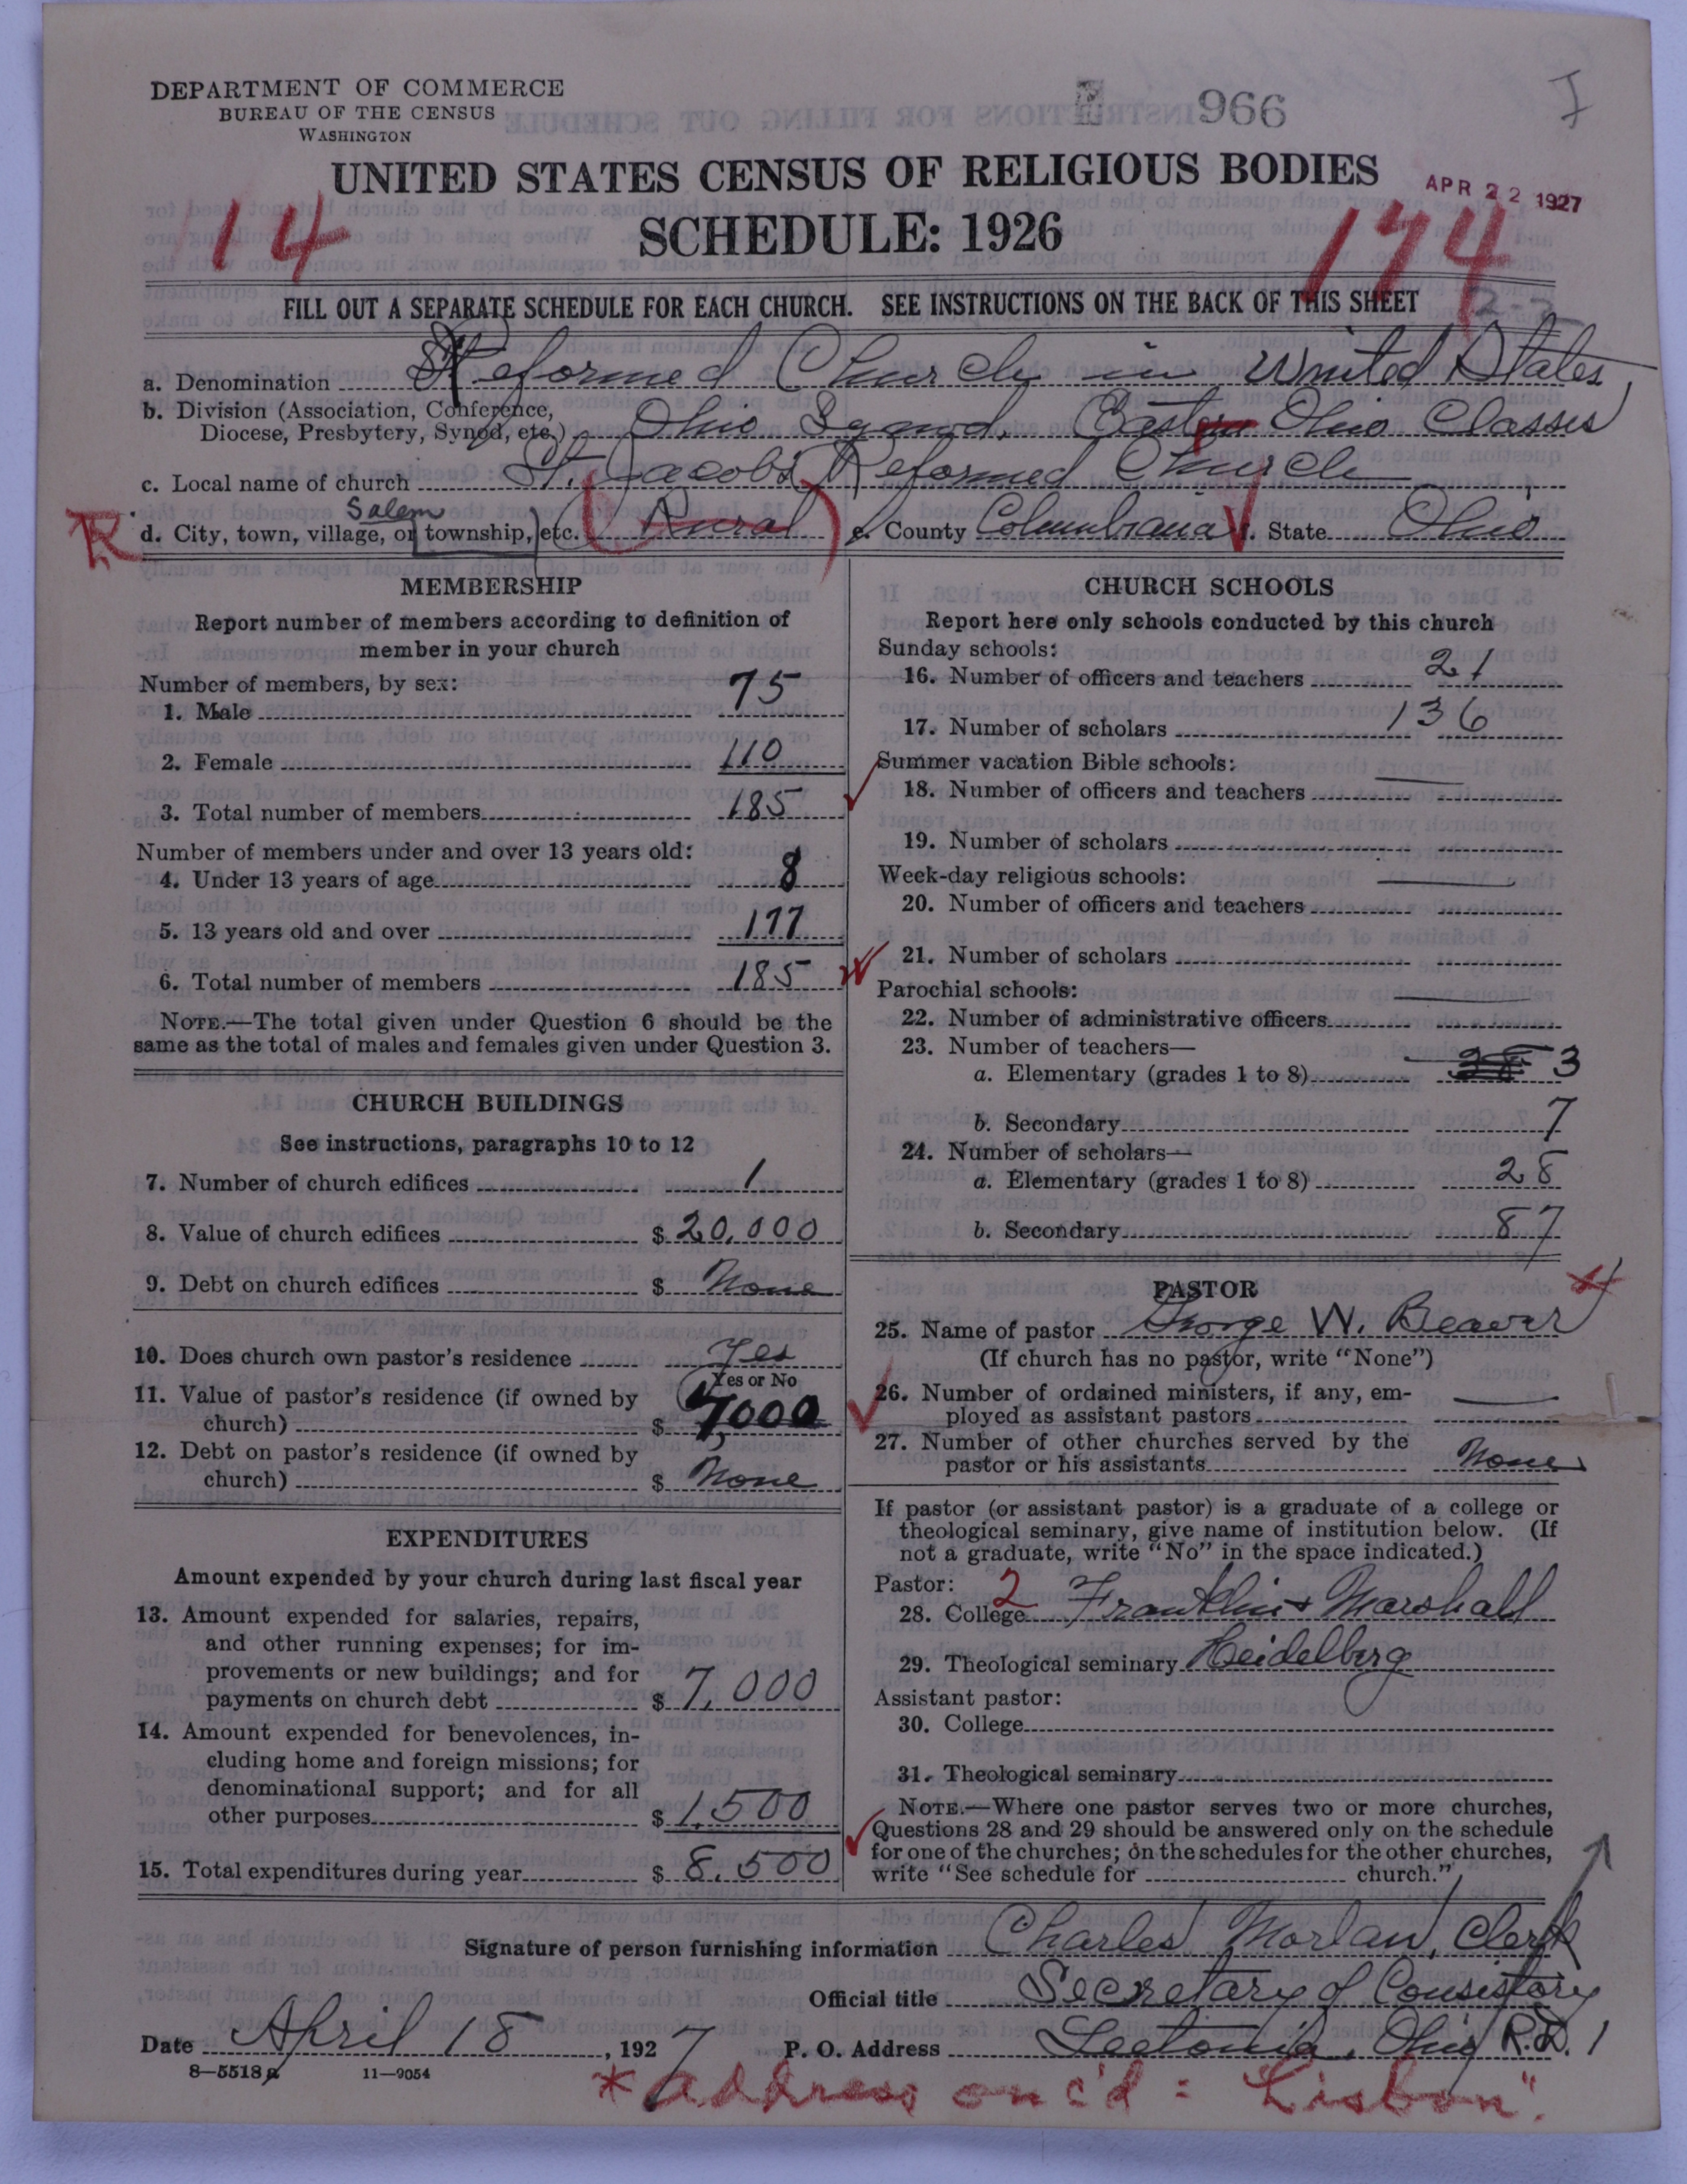 DEPARTMENT OF COMMERCE
BUREAU OF THE CENSUS
WASHINGTON
966
I
UNITED STATES CENSUS OF RELIGIOUS BODIES
APR 22 1927
14
SCHEDULE: 1926
174
2-2
FILL OUT A SEPARATE SCHEDULE FOR EACH CHURCH. SEE INSTRUCTIONS ON THE BACK OF THIS SHEET
a. Denomination Reformed Church in United States
b. Division (Association, Conference,
Diocese, Presbytery, Synod, etc.) Ohio Synod. East Ohio Classes
c. Local name of church St. Jacobs Reformed Church
Salem
R d. City, town, village, or township, etc. (Rural) e. County Columbiana f. State Ohio
MEMBERSHIP
Report number of members according to definition of
member in your church
Number of members, by sex:
1. Male 75
2. Female 110
3. Total number of members 185
Number of members under and over 13 years old:
4. Under 13 years of age 8
5. 13 years old and over 177
6. Total number of members 185
NOTE.—The total given under Question 6 should be the
same as the total of males and females given under Question 3.
CHURCH BUILDINGS
See instructions, paragraphs 10 to 12
7. Number of church edifices 1
8. Value of church edifices $ 20,000
9. Debt on church edifices $ None
10. Does church own pastor's residence Yes
Yes or No
11. Value of pastor's residence (if owned by
church) $ 4000
12. Debt on pastor's residence (if owned by
church) $ None
EXPENDITURES
Amount expended by your church during last fiscal year
13. Amount expended for salaries, repairs,
and other running expenses; for im-
provements or new buildings; and for
payments on church debt $ 7,000
14. Amount expended for benevolences, in-
cluding home and foreign missions; for
denominational support; and for all
other purposes $ 1,500
15. Total expenditures during year $ 8,500
CHURCH SCHOOLS
Report here only schools conducted by this church
Sunday schools:
16. Number of officers and teachers 21
17. Number of scholars 136
Summer vacation Bible schools:
18. Number of officers and teachers
19. Number of scholars
Week-day religious schools:
20. Number of officers and teachers
21. Number of scholars
Parochial schools:
22. Number of administrative officers
23. Number of teachers—
a. Elementary (grades 1 to 8) 3
b. Secondary 7
24. Number of scholars—
a. Elementary (grades 1 to 8) 28
b. Secondary 87
PASTOR
25. Name of pastor George W. Beaver
(If church has no pastor, write "None")
26. Number of ordained ministers, if any, em-
ployed as assistant pastors
27. Number of other churches served by the
pastor or his assistants None
If pastor (or assistant pastor) is a graduate of a college or
theological seminary, give name of institution below. (If
not a graduate, write "No" in the space indicated.)
Pastor:
28. College 2 Franklin + Marshall
29. Theological seminary Heidelberg
Assistant pastor:
30. College
31. Theological seminary
NOTE.—Where one pastor serves two or more churches,
Questions 28 and 29 should be answered only on the schedule
for one of the churches; on the schedules for the other churches,
write "See schedule for church."
Signature of person furnishing information Charles Morlan, Clerk
Official title Secretary of Consistory
Date April 18, 1927 P. O. Address Leetonia, Ohio R.D. 1
8—5518a 11—9054
* address on c'd = Lisbon".